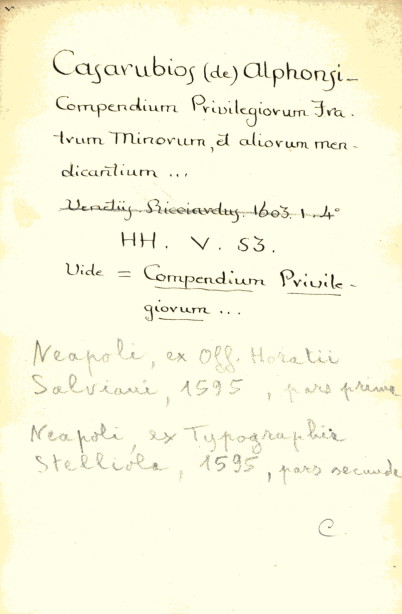 Casarubios (de) Alphonsi-
Compendium Privilegiorum Fra-
trum Minorum, et aliorum men-
dicantium ...
Venetijs. Ricciardus. 1603. 1. 4°
HH. V. 53.
Vide = Compendium Privile-
giorum ...
Neapoli, ex Off. Horatii
Salviani, 1595, pars prima
Neapoli, ex Typographia
Stelliola, 1595, pars secunda
C.